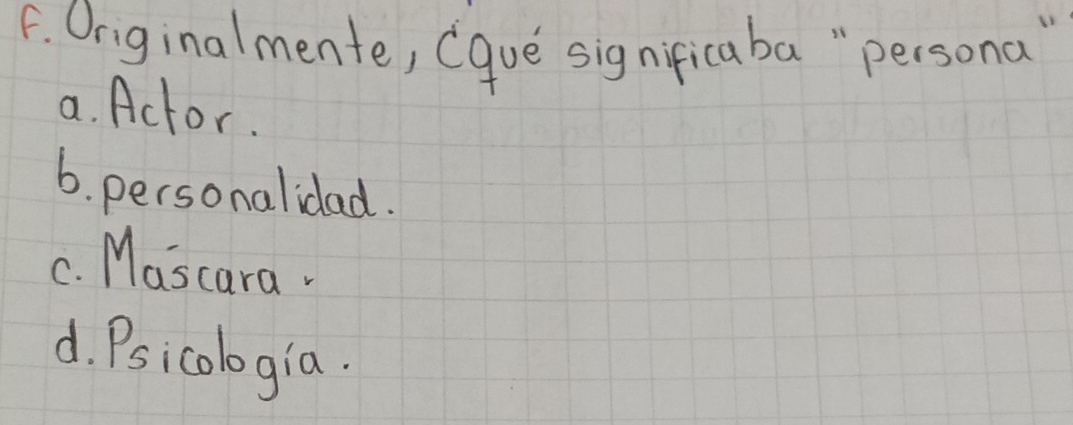 F. Originalmente, ¿qué significaba "persona"
a. Actor.
b. personalidad.
c. Máscara.
d. Psicología.